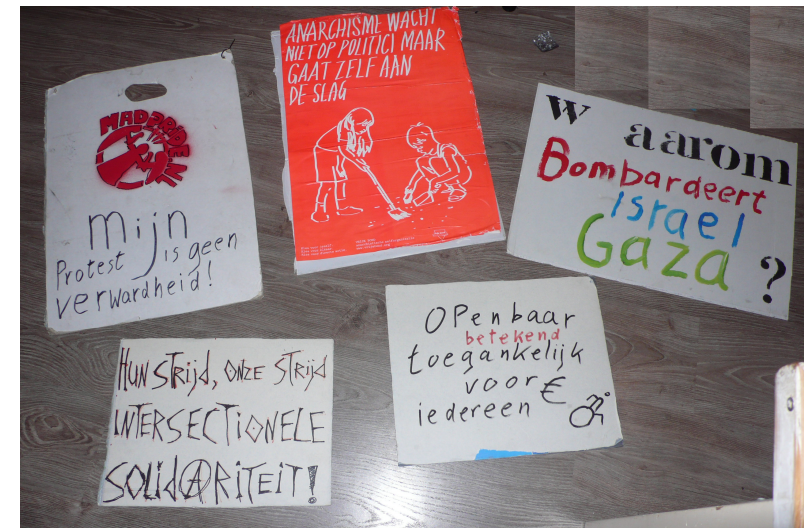 MADPRIDE
mijn
Protest is geen
verwardheid!
ANARCHISME WACHT
NIET OP POLITICI MAAR
GAAT ZELF AAN
DE SLAG
Waarom
Bombardeert
Israel
Gaza
?
HUN STRIJD, ONZE STRIJD
INTERSECTIONELE
SOLIDARITEIT!
OPenbaar
betekend
toegankelijk
voor €
iedereen